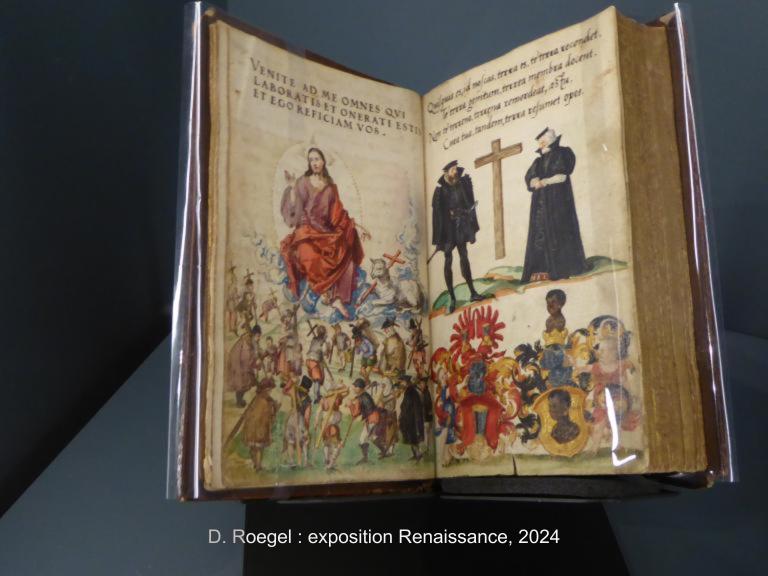 VENITE AD ME OMNES QVI
LABORATIS ET ONERATI ESTIS
ET EGO REFICIAM VOS.
Quisquis es, id noscas, terra es, te terra recondet,
Te terra genitum, terrea membra docent.
Non te terrena, terrena remordeat,
Cura tua, tandem, terra resumet opes.
D. Roegel : exposition Renaissance, 2024